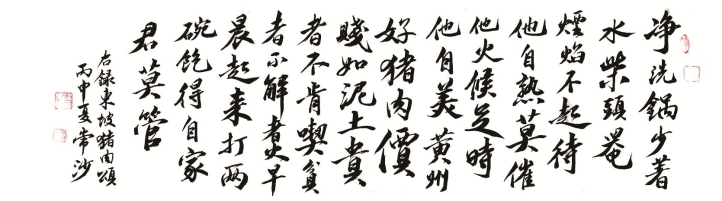 净洗鍋少著
水柴頭罨
煙焰不起待
他自熟莫催
他火候足時
他自美黄州
好猪肉價
賤如泥土貴
者不肯喫貧
者不解煮早
晨起来打两
碗飽得自家
君莫管
右録東坡猪肉頌
丙申夏常沙